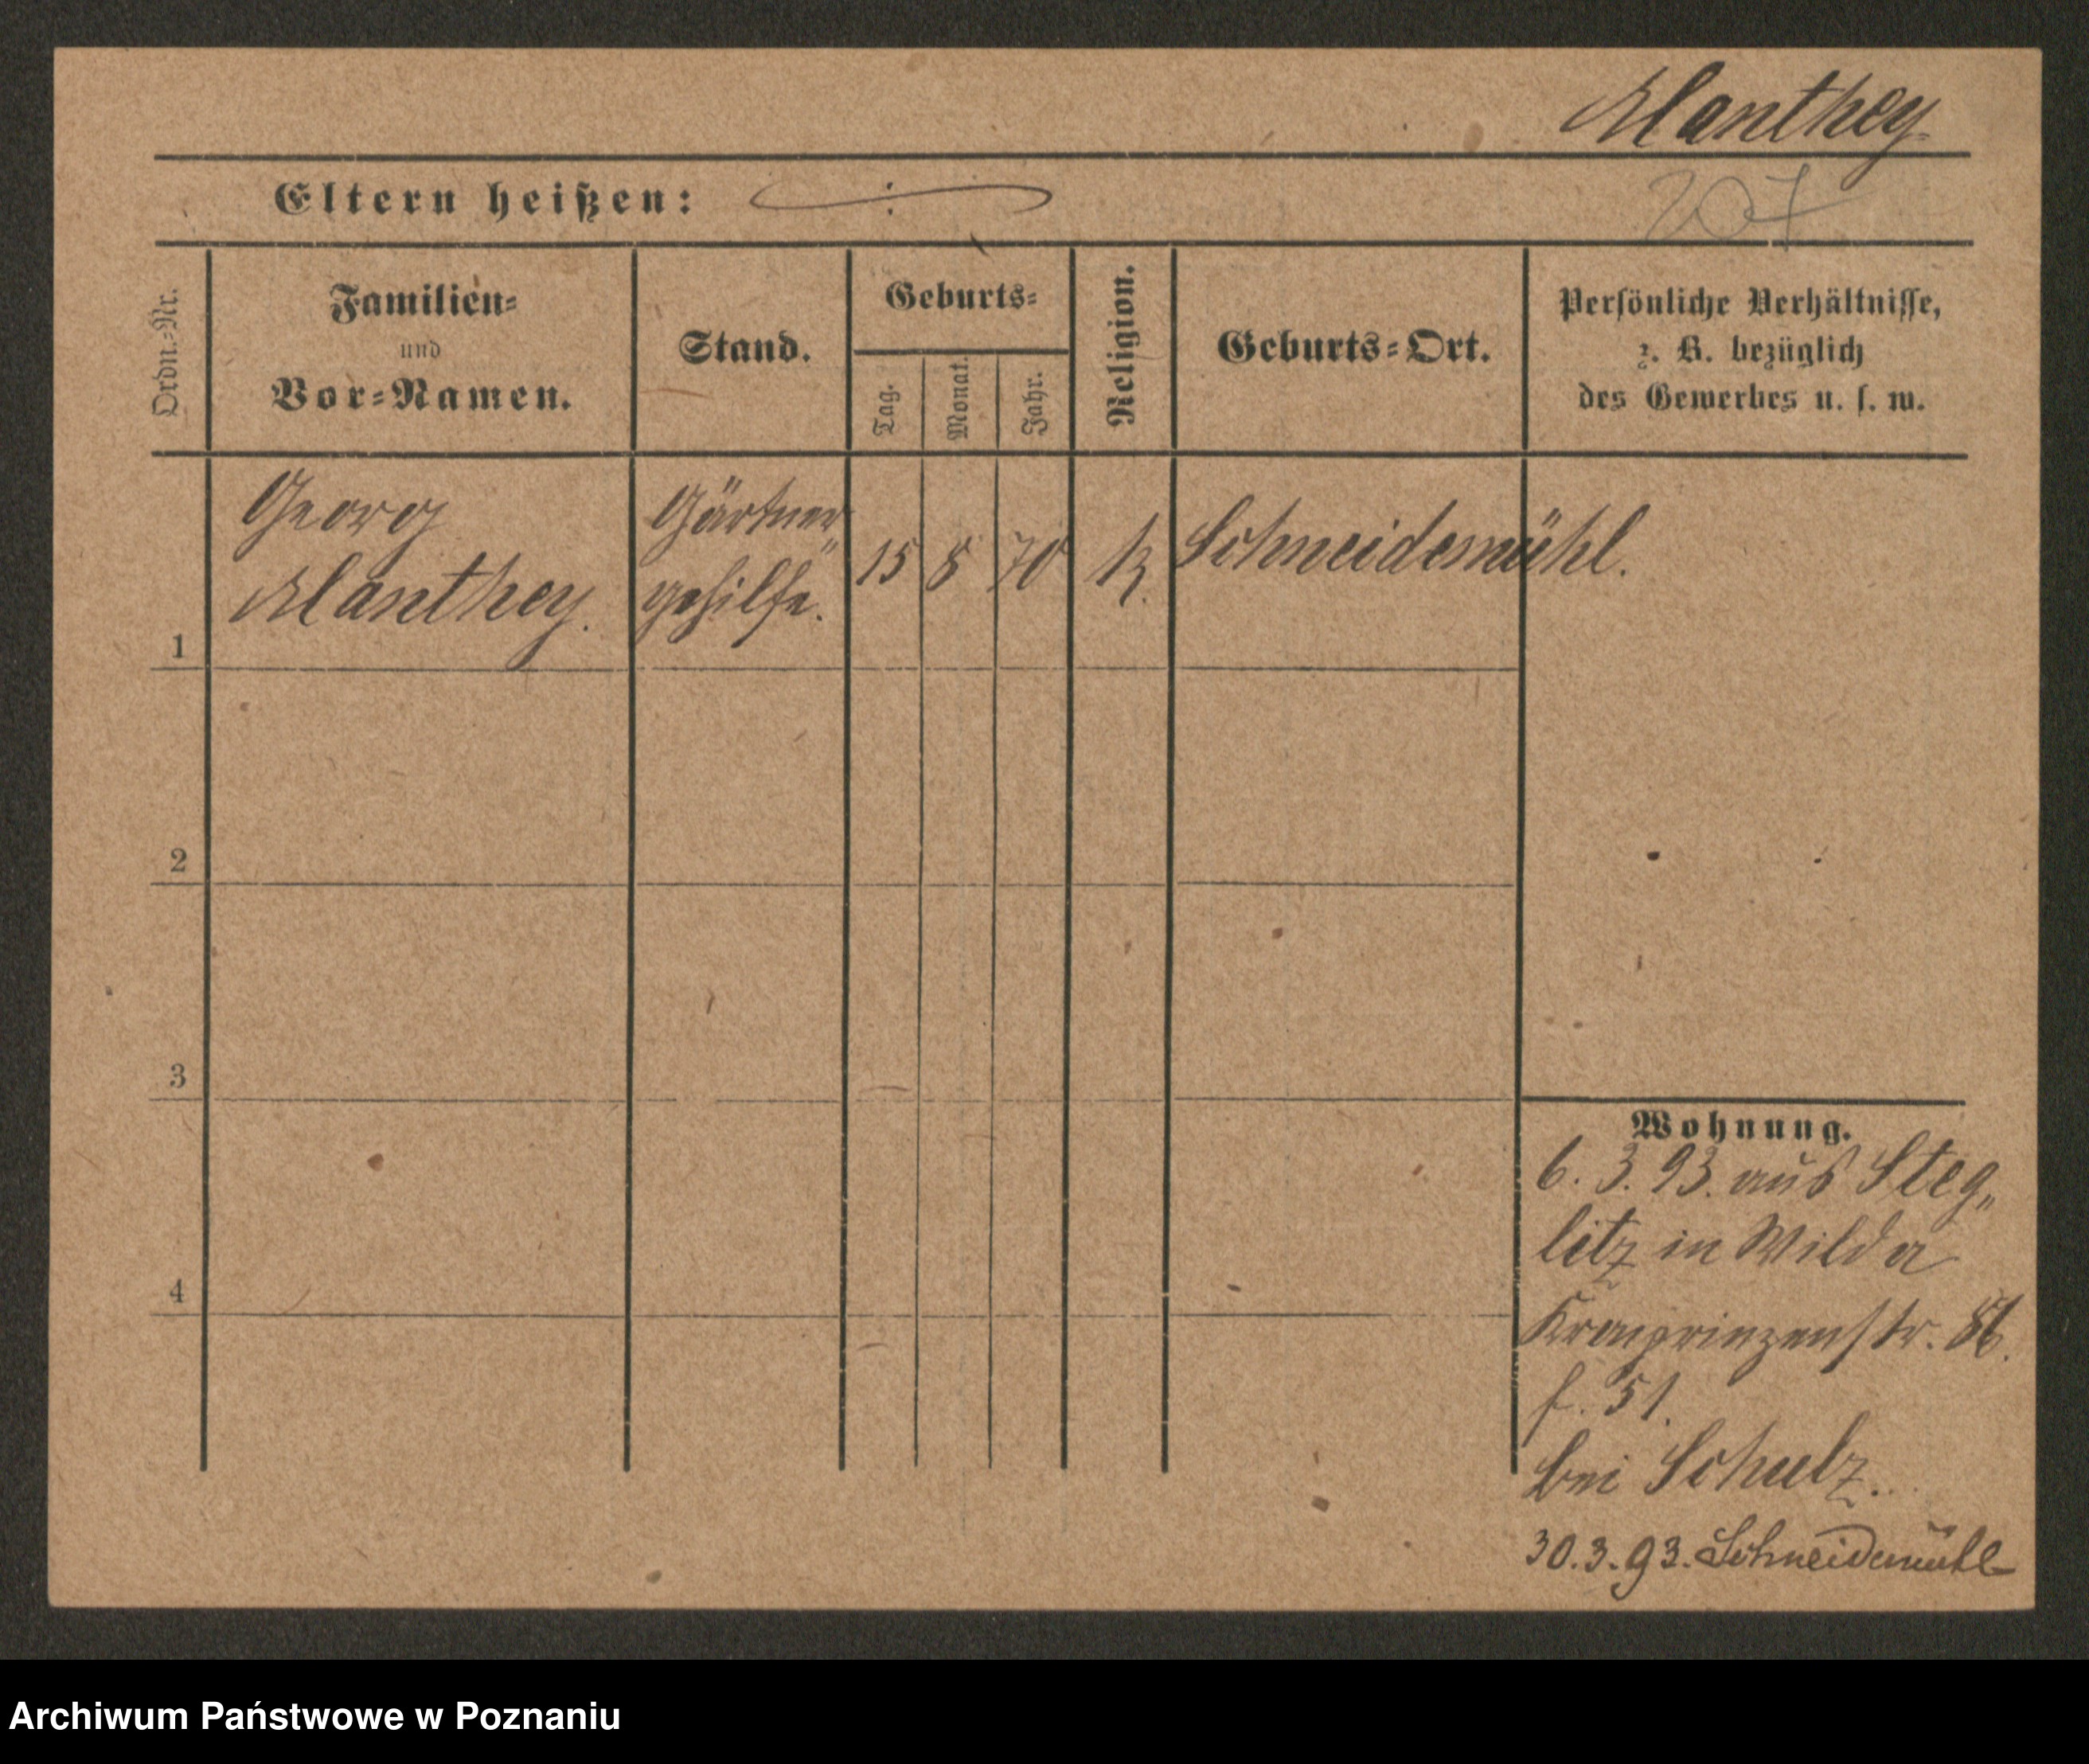 Manthey
Eltern heißen:
207
Ordn.-Nr.
Familien-
und
Vor-Namen.
Stand.
Geburts-
Tag.
Monat.
Jahr.
Religion.
Geburts-Ort.
Persönliche Verhältnisse,
z. B. bezüglich
des Gewerbes u. s. w.
1
Georg
Manthey.
Gärtner
gehilfe.
15
8
70
k.
Schneidemühl.
2
3
4
Wohnung.
6. 3. 93. aus Steg„
litz in Wilda
Kronprinzenstr. 86.
f. 51.
bei Schulz.
30.3.93. Schneidemühl
Archiwum Państwowe w Poznaniu